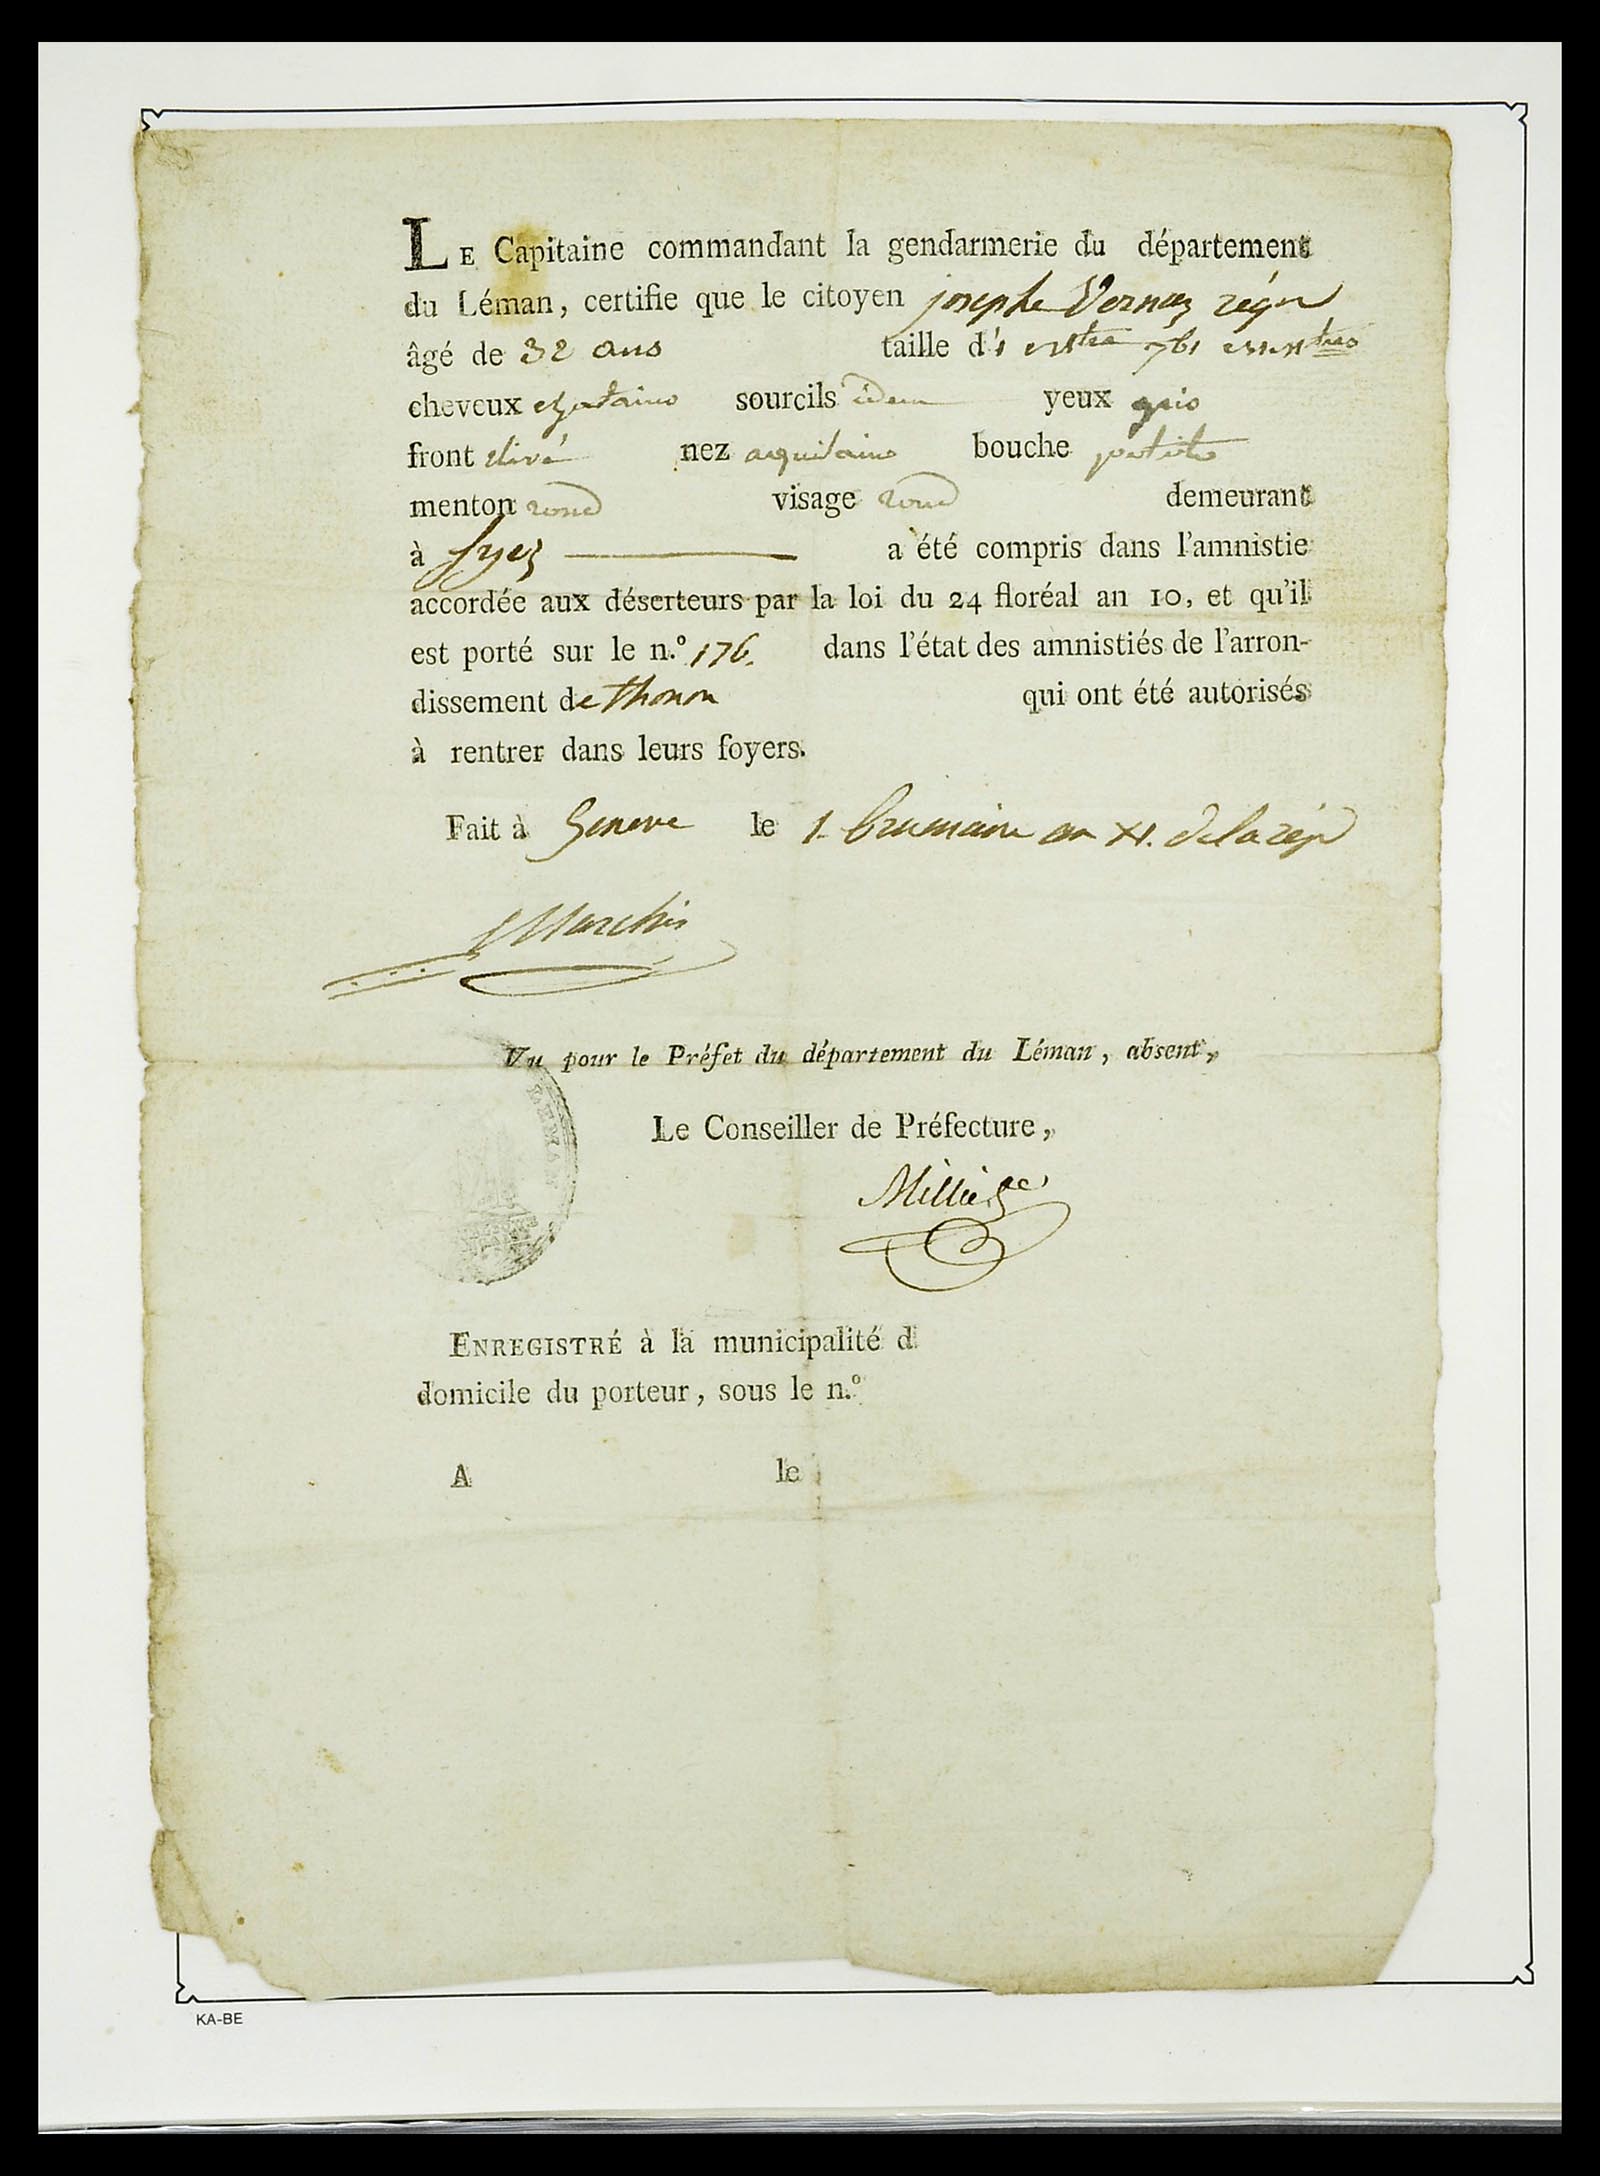 LE Capitaine commandant la gendarmerie du département
du Léman, certifie que le citoyen josephe Vernaz
âgé de 32 ans taille d'1 761
cheveux chatains sourcils idem yeux gris
front elivé nez aquilains bouche petite
menton rond visage rond demeurant
à fyez a été compris dans l'amnistie
accordée aux déserteurs par la loi du 24 floréal an 10, et qu'il
est porté sur le n.º 176. dans l'état des amnistiés de l'arron-
dissement de thonon qui ont été autorisés
à rentrer dans leurs foyers.
Fait à Geneve le 1. brumaire an XI. de la rép
Vu pour le Préfet du département du Léman, absent,
Le Conseiller de Préfecture,
LEMAN
ENREGISTRÉ à la municipalité d
domicile du porteur, sous le n.º
A le
KA-BE